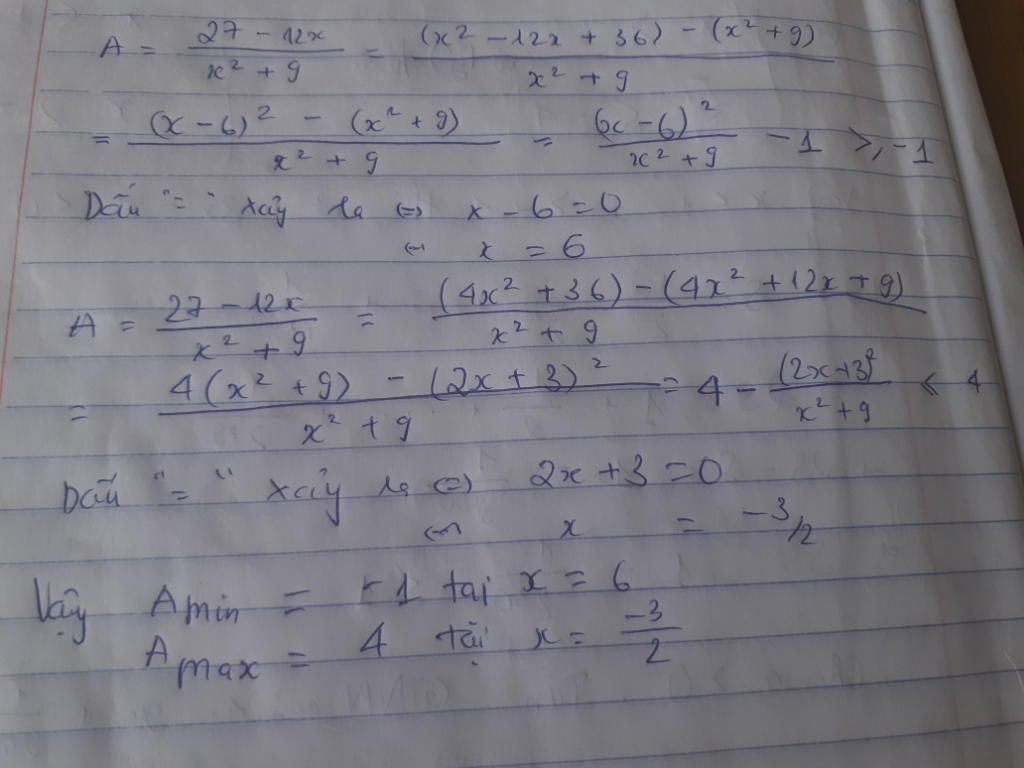 A = (27 - 12x)/(x² + 9) = ((x² - 12x + 36) - (x² + 9))/(x² + 9)
= ((x - 6)² - (x² + 9))/(x² + 9) = (x - 6)²/(x² + 9) - 1 ⩾ -1
Dấu "=" xảy ra ⇔ x - 6 = 0
⇔ x = 6
A = (27 - 12x)/(x² + 9) = ((4x² + 36) - (4x² + 12x + 9))/(x² + 9)
= (4(x² + 9) - (2x + 3)²)/(x² + 9) = 4 - (2x + 3)²/(x² + 9) ⩽ 4
Dấu "=" xảy ra ⇔ 2x + 3 = 0
⇔ x = -3/2
Vậy Amin = -1 tại x = 6
Amax = 4 tại x = -3/2